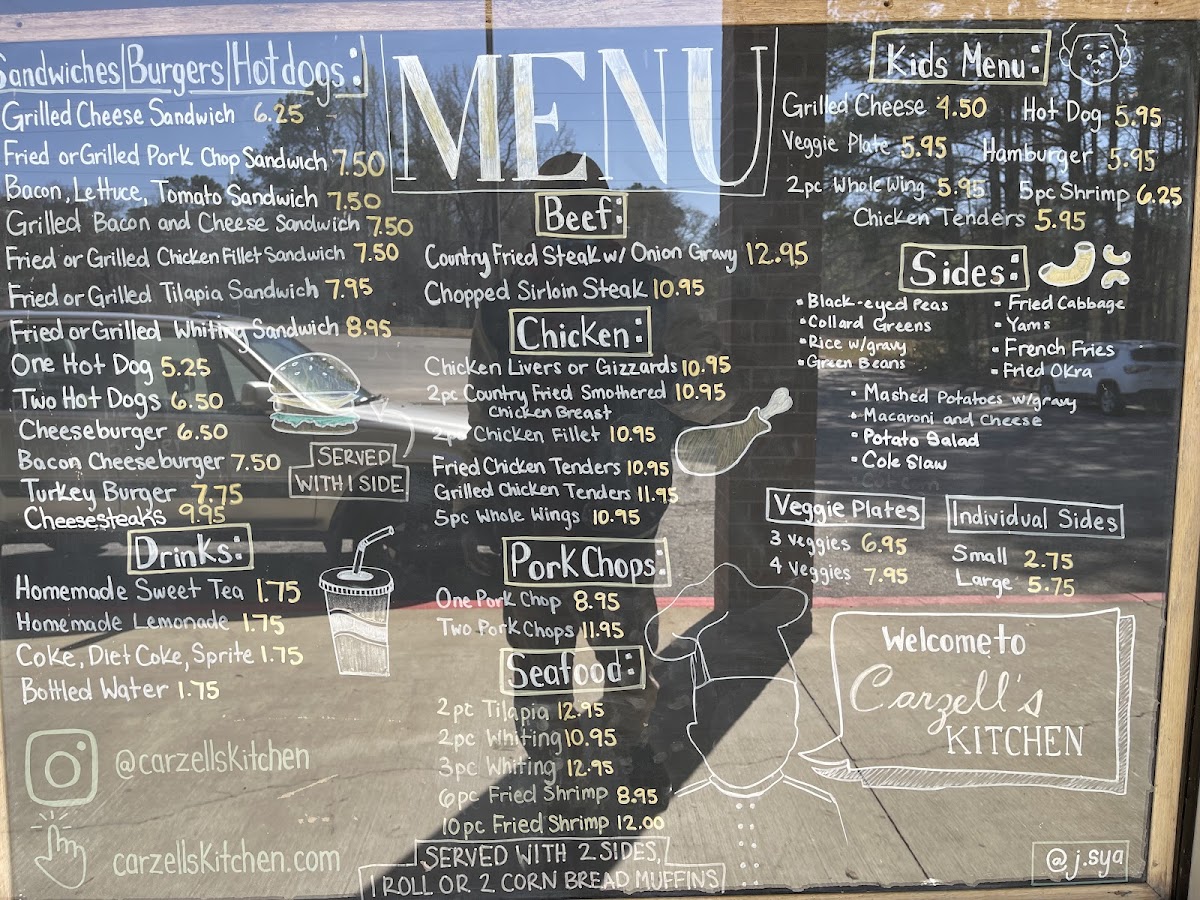 Sandwiches|Burgers|Hotdogs:
Grilled Cheese Sandwich 6.25
Fried or Grilled Pork Chop Sandwich 7.50
Bacon, Lettuce, Tomato Sandwich 7.50
Grilled Bacon and Cheese Sandwich 7.50
Fried or Grilled Chicken Fillet Sandwich 7.50
Fried or Grilled Tilapia Sandwich 7.95
Fried or Grilled Whiting Sandwich 8.95
One Hot Dog 5.25
Two Hot Dogs 6.50
Cheeseburger 6.50
Bacon Cheeseburger 7.50
Turkey Burger 7.75
Cheesesteaks 9.95
SERVED
WITH 1 SIDE
Drinks:
Homemade Sweet Tea 1.75
Homemade Lemonade 1.75
Coke, Diet Coke, Sprite 1.75
Bottled Water 1.75
@carzellskitchen
carzellskitchen.com
MENU
Beef:
Country Fried Steak w/ Onion Gravy 12.95
Chopped Sirloin Steak 10.95
Chicken:
Chicken Livers or Gizzards 10.95
2pc Country Fried Smothered 10.95
Chicken Breast
2pc Chicken Fillet 10.95
Fried Chicken Tenders 10.95
Grilled Chicken Tenders 11.95
5pc Whole Wings 10.95
Pork Chops:
One Pork Chop 8.95
Two Pork Chops 11.95
Seafood:
2pc Tilapia 12.95
2pc Whiting 10.95
3pc Whiting 12.95
6pc Fried Shrimp 8.95
10pc Fried Shrimp 12.00
SERVED WITH 2 SIDES,
1 ROLL OR 2 CORN BREAD MUFFINS
Kids Menu:
Grilled Cheese 4.50 Hot Dog 5.95
Veggie Plate 5.95 Hamburger 5.95
2pc Whole Wing 5.95 5pc Shrimp 6.25
Chicken Tenders 5.95
Sides:
• Black-eyed Peas • Fried Cabbage
• Collard Greens • Yams
• Rice w/gravy • French Fries
• Green Beans • Fried Okra
• Mashed Potatoes w/gravy
• Macaroni and Cheese
• Potato Salad
• Cole Slaw
Veggie Plates
3 Veggies 6.95
4 Veggies 7.95
Individual Sides
Small 2.75
Large 5.75
Welcome to
Carzell's
KITCHEN
@j.sya